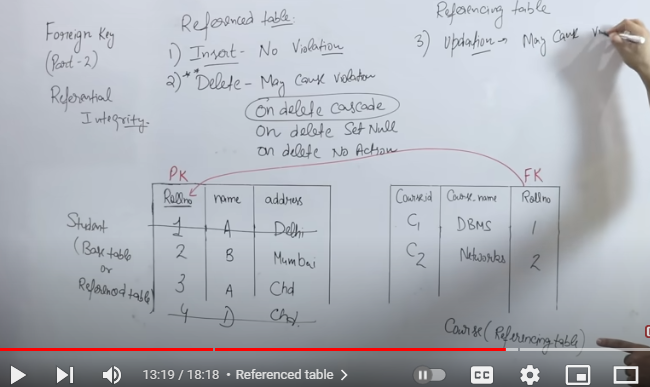 Foreign Key
(Part-2)
Referential
Integrity.
Referenced table.
1) Insert - No Violation
2)** Delete - May Cause violation
On delete Cascade
On delete Set Null
on delete No Action
Referencing table
3) Updation - May Cause V
PK
FK
Rollno name address
1 A Delhi
2 B Mumbai
3 A Chd
4 D Chd.
Student
(Base table
or
Referenced table)
Course id Course_name Rollno
C1 DBMS 1
C2 Networks 2
Course (Referencing table)
13:19 / 18:18 • Referenced table >
CC